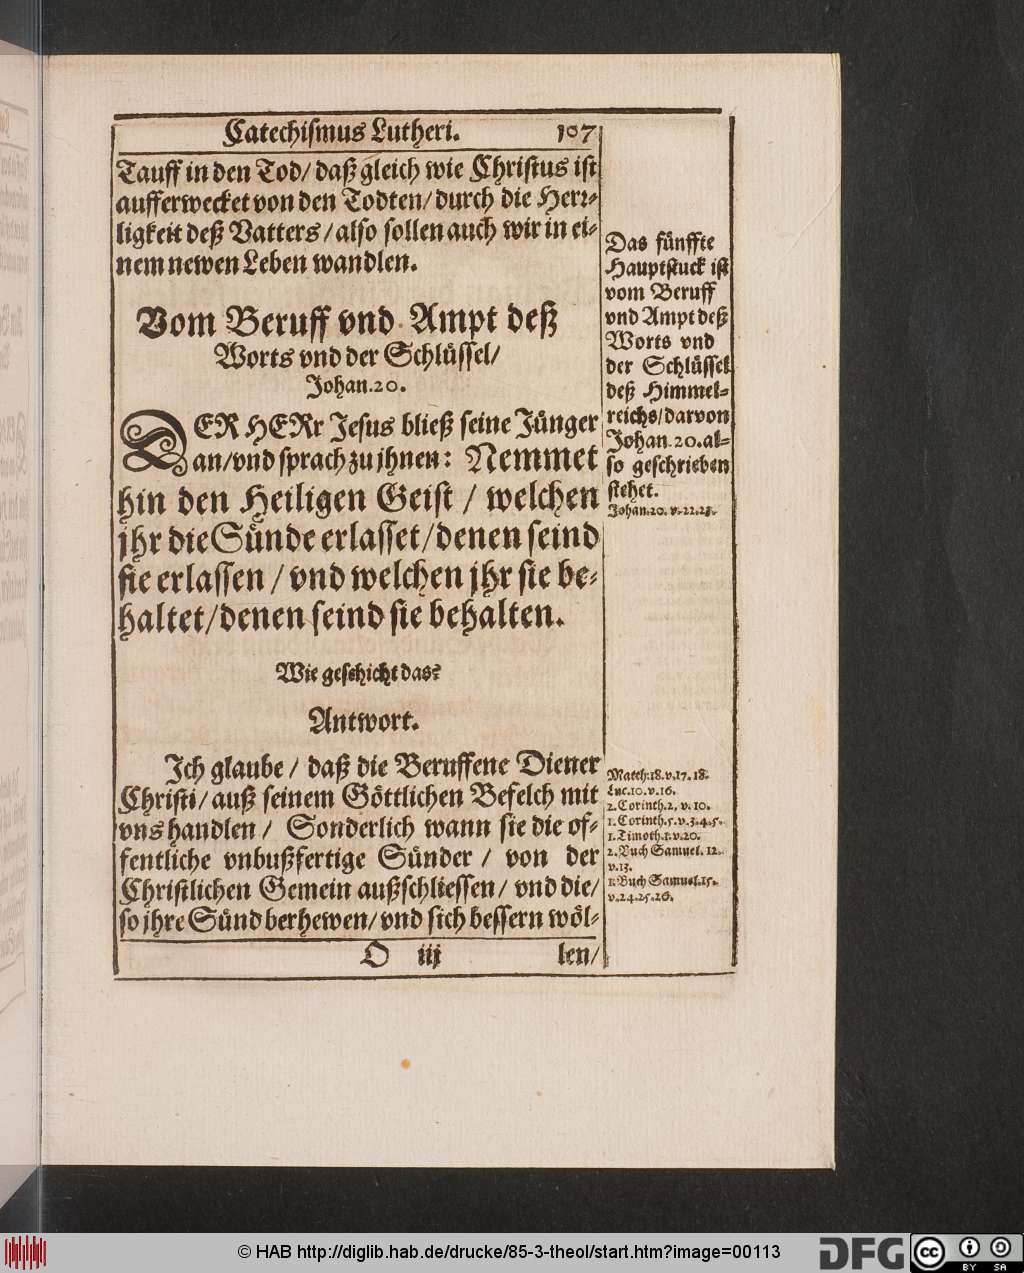 Catechismus Lutheri. 107
Tauff in den Tod/ daß gleich wie Christus ist
aufferwecket von den Todten/ durch die Herr-
ligkeit deß Vatters/ also sollen auch wir in ei-
nem newen Leben wandlen.
Vom Beruff vnd Ampt deß
Worts vnd der Schlüssel/
Johan. 20.
DER HERr Jesus bließ seine Jünger
an/ vnd sprach zu jhnen: Nemmet
hin den Heiligen Geist / welchen
jhr die Sünde erlasset/ denen seind
sie erlassen / vnd welchen jhr sie be-
haltet/ denen seind sie behalten.
Wie geschicht das?
Antwort.
Ich glaube / daß die Beruffene Diener
Christi/ auß seinem Göttlichen Befelch mit
vns handlen / Sonderlich wann sie die of-
fentliche vnbußfertige Sünder / von der
Christlichen Gemein außschliessen/ vnd die/
so jhre Sünd berhewen/ vnd sich bessern wöl-
O iij len/
Das fünffte
Hauptstuck ist
vom Beruff
vnd Ampt deß
Worts vnd
der Schlüssel
deß Himmel-
reichs/ darvon
Johan. 20. al-
so geschrieben
stehet.
Johan. 20. v. 22. 23.
Matth. 18. v. 17. 18.
Luc. 10. v. 16.
2. Corinth. 2. v. 10.
1. Corinth. 5. v. 3. 4. 5.
1. Timoth. 1. v. 20.
2. Buch Samuel. 12.
v. 13.
1. Buch Samuel. 15.
v. 24. 25. 26.
© HAB http://diglib.hab.de/drucke/85-3-theol/start.htm?image=00113
DFG
cc BY SA